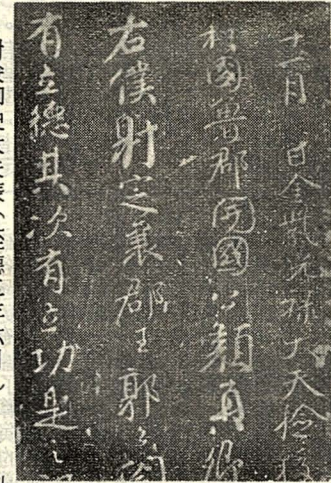 十一月 日金紫光祿大夫檢校
柱國魯郡開國公顏真卿
右僕射定襄郡王郭公閣
有立德其次有立功是之謂